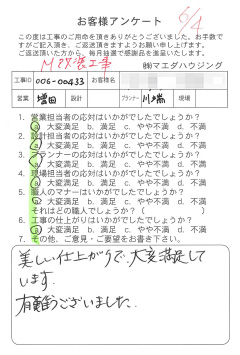 お客様アンケート
6/4
この度は工事のご用命を頂きありがとうございました。お手数で
すがご記入頂き、ご返送頂きますようお願い申し上げます。
ご返送頂いた方から、毎月抽選で感謝品を進呈いたします。
㈱マエダハウジング
工事ID 006-00433 お客様名
営業 増田 設計 プランナー 川端 現場
1. 営業担当者の応対はいかがでしたでしょうか?
a. 大変満足 b. 満足 c. やや不満 d. 不満
2. 設計担当者の応対はいかがでしたでしょうか?
a. 大変満足 b. 満足 c. やや不満 d. 不満
3. プランナーの応対はいかがでしたでしょうか?
a. 大変満足 b. 満足 c. やや不満 d. 不満
4. 現場担当者の応対はいかがでしたでしょうか?
a. 大変満足 b. 満足 c. やや不満 d. 不満
5. 職人のマナーはいかがでしたでしょうか?
a. 大変満足 b. 満足 c. やや不満 d. 不満
それはどの職人でしょうか?( )
6. 工事の仕上がりはいかがでしたでしょうか?
a. 大変満足 b. 満足 c. やや不満 d. 不満
7. その他、ご意見・ご要望をお書き下さい。
美しい仕上がりで、大変満足して
います。
有難うございました。